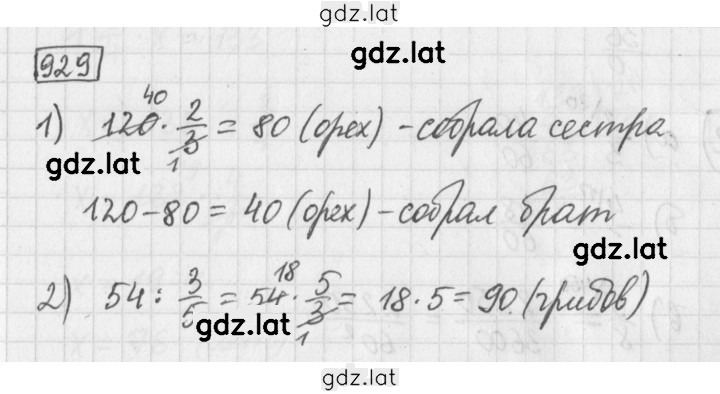 gdz.lat
929
gdz.lat
1) 120 · 2/3 = 80 (орех) - собрала сестра.
40
1
gdz.lat
120 - 80 = 40 (орех) - собрал брат
gdz.lat
2) 54 : 3/5 = 54 · 5/3 = 18 · 5 = 90 (грибов)
18
1
gdz.lat
gdz.lat